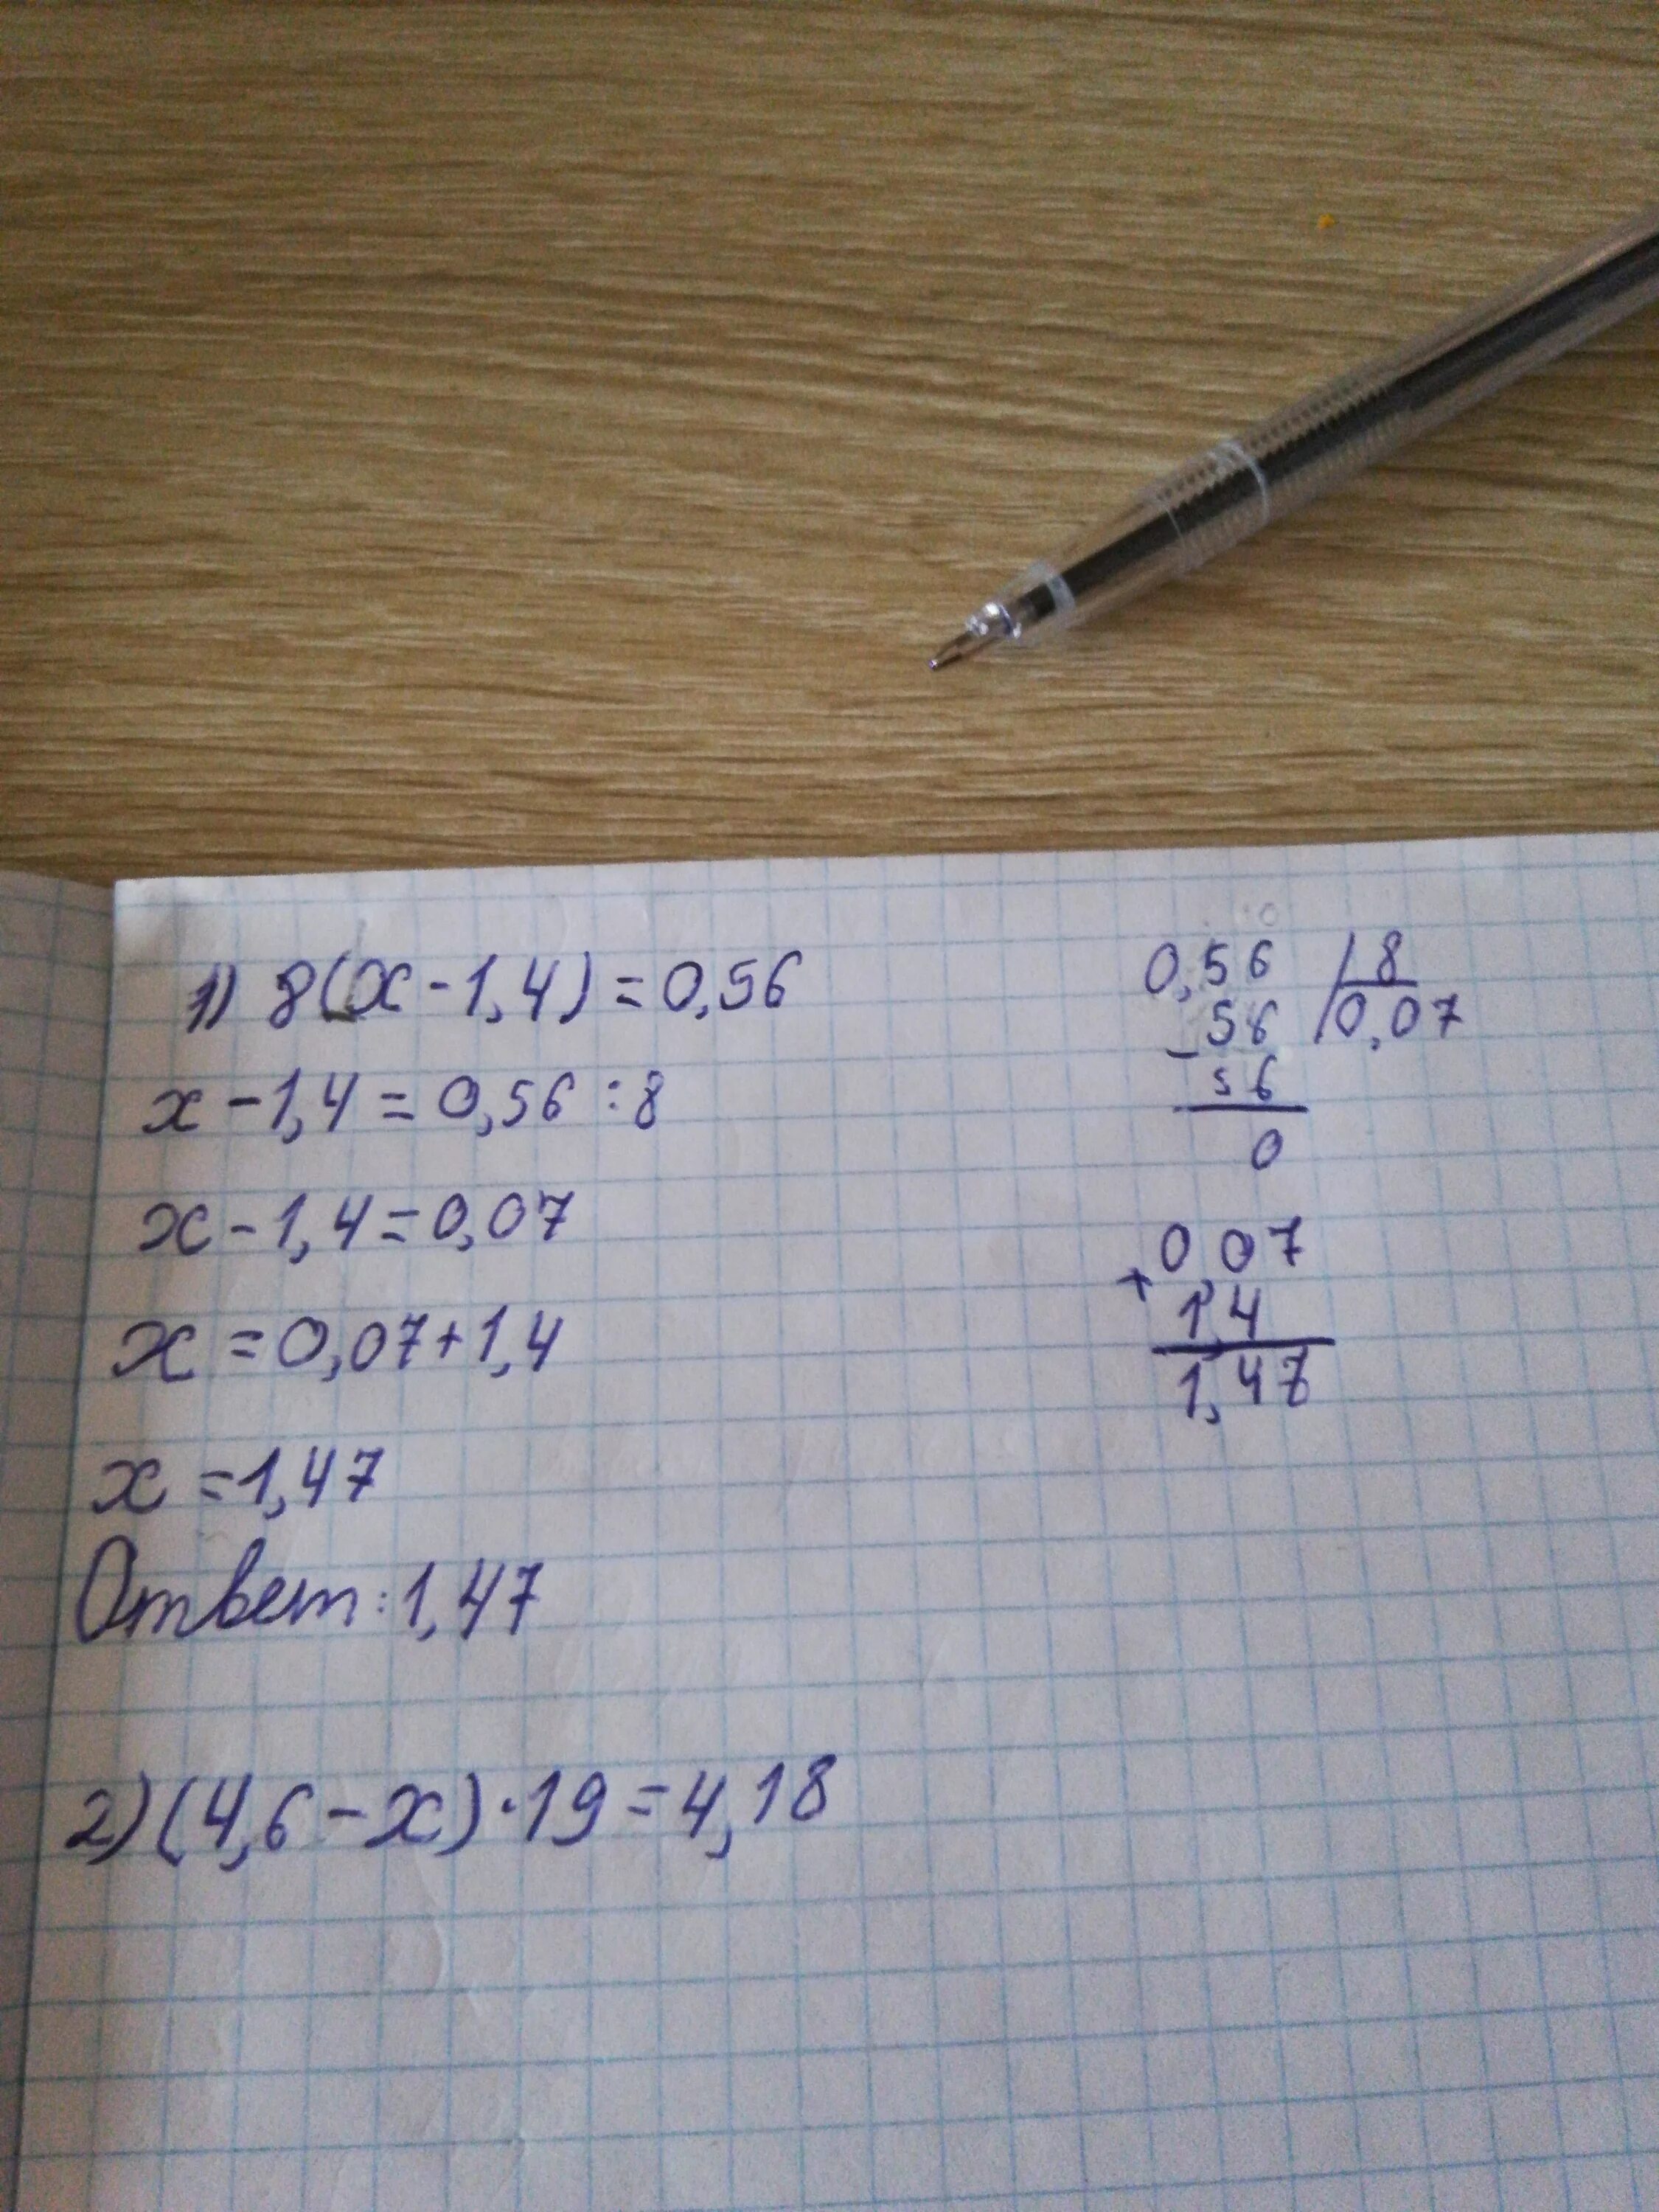 1) 8(x-1,4)=0,56
x-1,4=0,56:8
x-1,4=0,07
x=0,07+1,4
x=1,47
Ответ:1,47
2)(4,6-x)·19=4,18
0,56 8
56 0,07
- 56
0
0,07
+ 1,4
1,47